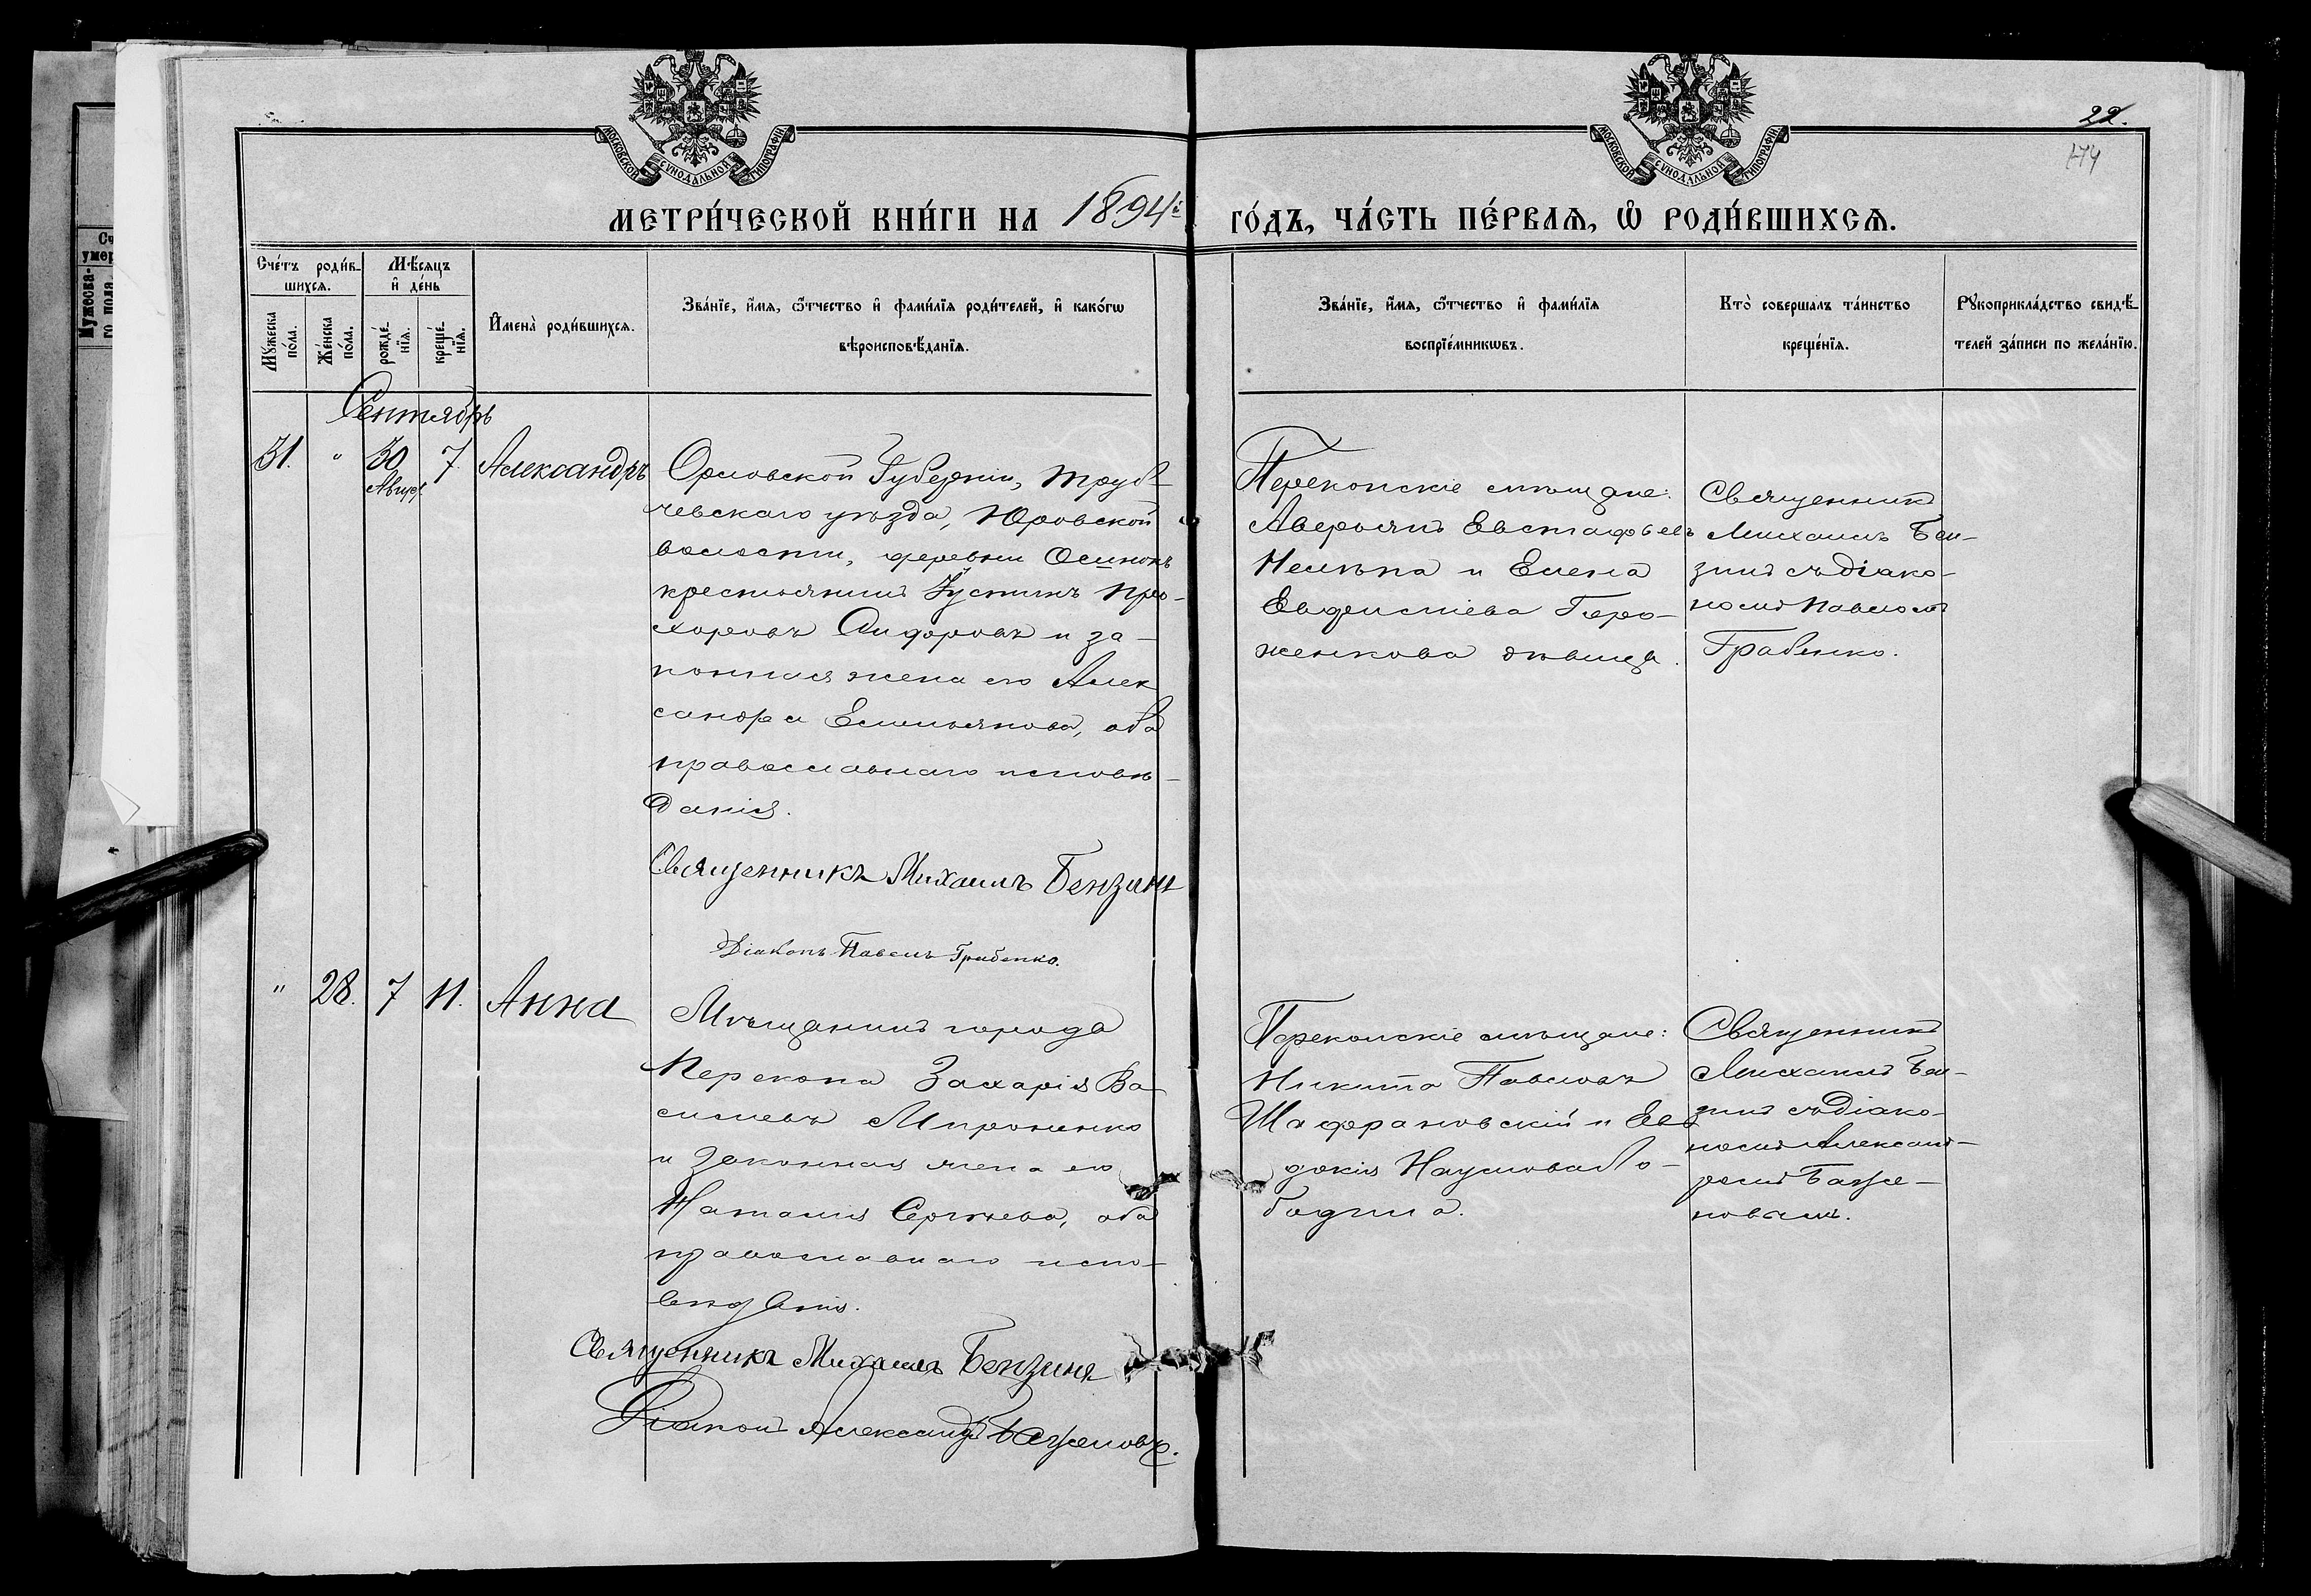 22.
174
МОСКОВСКОЙ СѴНОДАЛЬНОЙ ТИПОГРАФІИ
МОСКОВСКОЙ СѴНОДАЛЬНОЙ ТИПОГРАФІИ
МЕТРИ́ЧЕСКОЙ КНИ́ГИ НА 1894й ГО́ДЪ, ЧА́СТЬ ПЕ́РВАѦ, Ѡ҆ РОДИ́ВШИХСѦ.
Сче́тъ роди́в-
шихсѧ.
Мꙋ́жеска по́ла.
Же́нска по́ла.
Мѣ́сѧцъ
и҆ де́нь
рожде́-
нїѧ.
креще́-
нїѧ.
И҆мена̀ роди́вшихсѧ.
Зва́нїе, и҆́мѧ, ѻ҆́тчество и҆ фами́лїѧ роди́телей, и҆ како́гѡ
вѣроисповѣ́данїѧ.
Зва́нїе, и҆́мѧ, ѻ҆́тчество и҆ фами́лїѧ
воспрїе́мникѡвъ.
Кто̀ соверша́лъ та́инство
креще́нїѧ.
Рꙋкоприкла́дство свидѣ́-
телей за́писи по жела́нїю.
Сентябрь
31. " 30 7. Александръ
Авгус.
Орловской Губерніи, Труб-
чевскаго уѣзда, Юровской
волости, деревни Осинокъ
крестьянинъ Іустинъ Про-
хоровъ Сидоровъ и за-
конная жена его Алек
сандра Емельянова, оба
православнаго исповѣ-
данія.
Священникъ Михаилъ Бензинъ
Діаконъ Павелъ Грабенко.
Перекопскіе мѣщане:
Аверьянъ Евстафьевъ
и Елена
женкова дѣвица.
Священникъ
Михаилъ Бен-
зинъ съ діако-
номъ Павломъ
Грабенко.
" 28. 7 11. Анна
Мѣщанинъ города
Перекопа Захарія Ва-
сильевъ Мироненко
и законная жена его
Наталія Сергѣева, оба
православнаго испо-
вѣданія.
Священникъ Михаилъ Бензинъ
Діаконъ Александръ Баженовъ.
Перекопскіе мѣщане:
Никита Павловъ
Шафрановскій и Ев-
докія Наумова Ло-
бодина.
Священникъ
Михаилъ Бен-
зинъ съ діако-
номъ Алексан-
ромъ Баже-
новымъ.
Мужеска-
го пола.